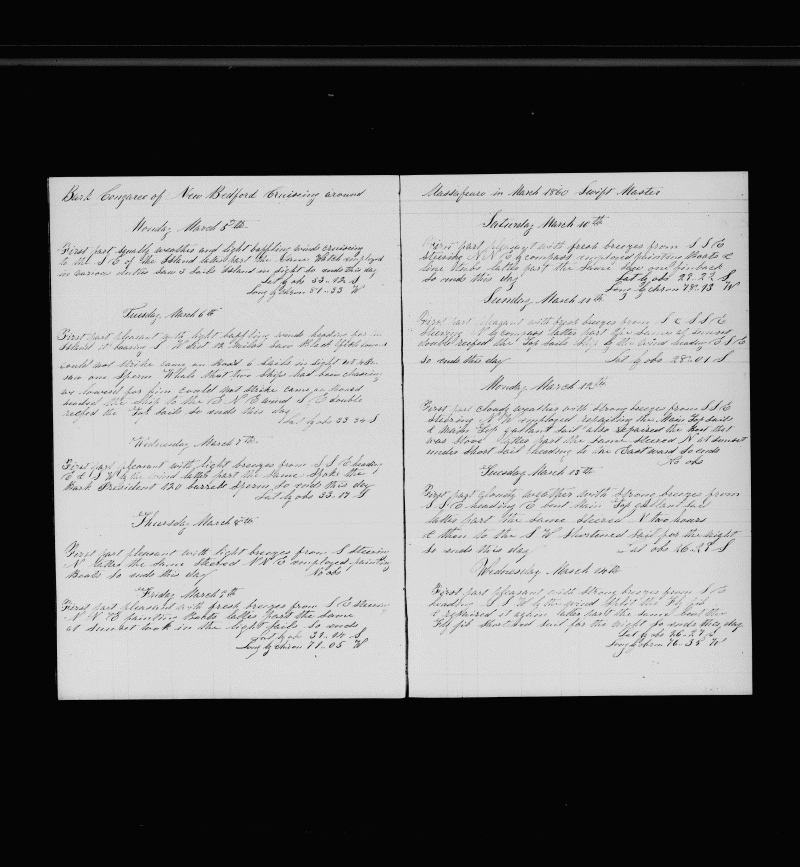 Bark Congaree of New Bedford Cruising around
Monday March 5th
First part squally weather and light baffling winds cruising
to the S E of the Island latter part the same Watch employed
in various duties saw 3 Sails Island in sight so ends this day
Lat by obs 33-42 S
Long by Chron 81-33 W
Tuesday March 6th
First part pleasant with light baffling winds heading for in
Island it bearing S W dist 12 Miles saw Black fish
could not strike came on board 6 sails in sight at 4
saw one Sperm Whale that two Ships had been chasing
we lowered for him could not strike came on board
headed the Ship to the E N E wind S E double
reefed the Top sails so ends this day
Lat by obs 33 34 S
Wednesday March 7th
First part pleasant with light breezes from S S E heading
E & S W by the wind latter part the same Spoke the
Bark President 120 barrels sperm so ends this day
Lat by obs 33-17 S
Thursday March 8th
First part pleasant with light breezes from S Steering
N latter the same steered N N E employed painting
Boats so ends this day No obs
Friday March 9th
First part pleasant with fresh breezes from S E steering
N N E painting Boats latter part the same
at sunset took in the light sails so ends
Lat by obs 31-14 S
Long by Chron 79-05 W
Massafuero in March 1860 Swift Master
Saturday March 10th
First part pleasant with fresh breezes from S S E
steering N N E by compass employed painting Boats &
latter part the same saw one finback
so ends this day Lat by obs 29-22 S
Long by Chron 78-13 W
Sunday March 11th
First part pleasant with fresh breezes from S & S S E
steering N by compass latter part the same at sunset
double reefed the Top sails Ship by the wind heading E S E
so ends this day Lat by obs 28-01 S
Monday March 12th
First part cloudy weather with strong breezes from S S E
steering N W employed repairing the Main Top sails
& Main Top gallant sail also repaired the Boat that
was stove latter part the same steered N at sunset
under short sail heading to the Eastward so ends
No obs
Tuesday March 13th
First part cloudy weather with strong breezes from
S S E heading E bent Main Top gallant sail
latter part the same steered N two hours
& then to the S W Shortened sail for the night
so ends this day Lat obs 26-28 S
Wednesday March 14th
First part pleasant with strong breezes from S E
heading S S W by the wind split the Fly jib
& repaired it again latter part the same bent the
Fly jib shortened sail for the night so ends this day
Lat by obs 26-27 S
Long by Chron 76-35 W